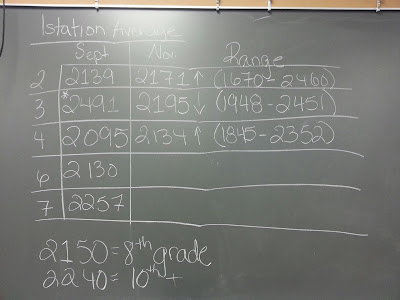 Istation Average
Sept Nov. Range
2 2139 2171↑ (1670-2460)
3 *2491 2195↓ (1948-2451)
4 2095 2134↑ (1845-2352)
6 2130
7 2257
2150=8th grade
2240=10th+